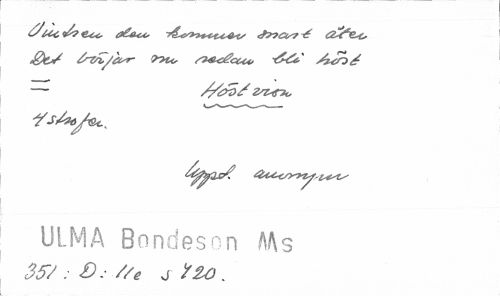 Vintren den kommer snart åter
Det börjar nu redan bli höst
=
Höstvisa
4 strofer.
Uppt. anonym
ULMA Bondeson Ms
351 : D : 11e s 420.